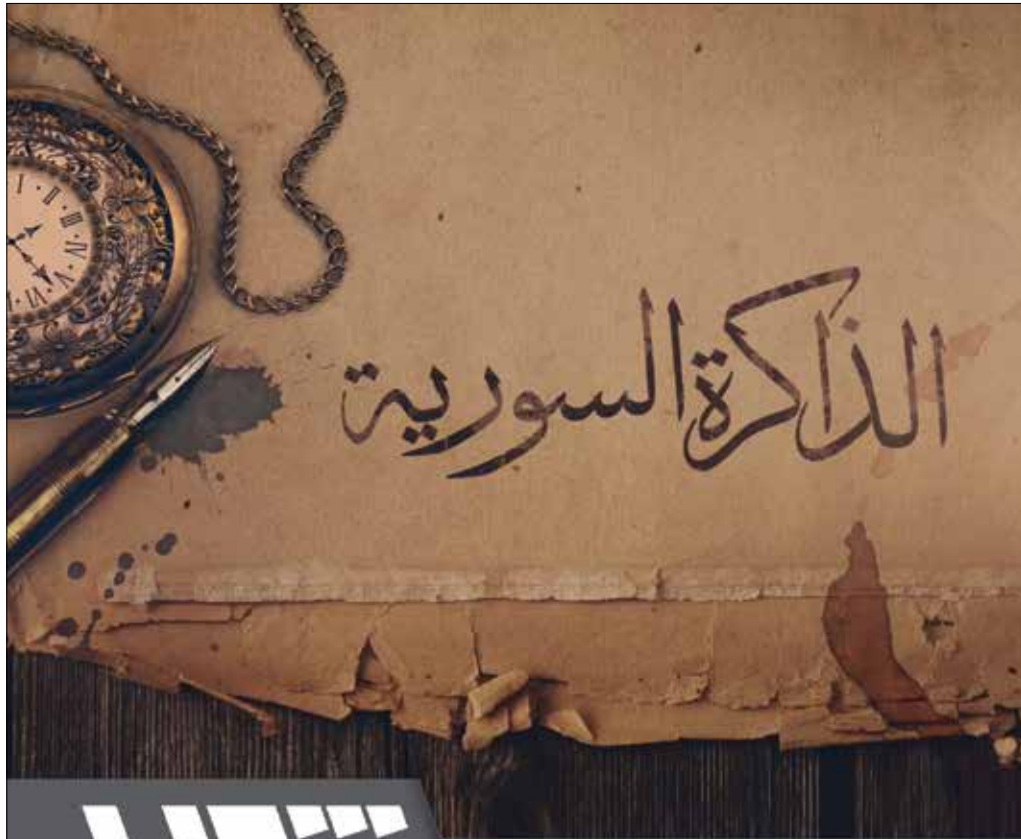 الذاكرة السورية